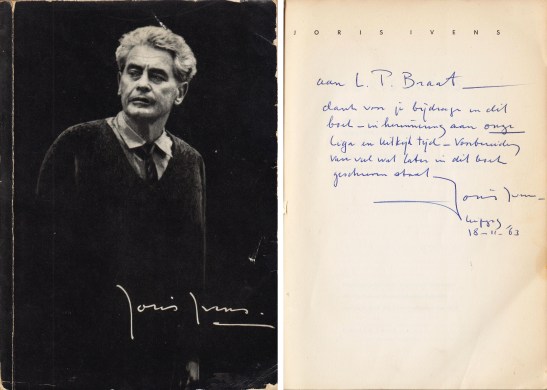 Joris Ivens.
JORIS IVENS
aan L. P. Braat
dank voor je bijdrage in dit
boek – in herinnering aan onze
Liga en Uitkijk tijd – Voorbereiding
van veel wat later in dit boek
geschreven staat
Joris Ivens
Leipzig
18-11-'63